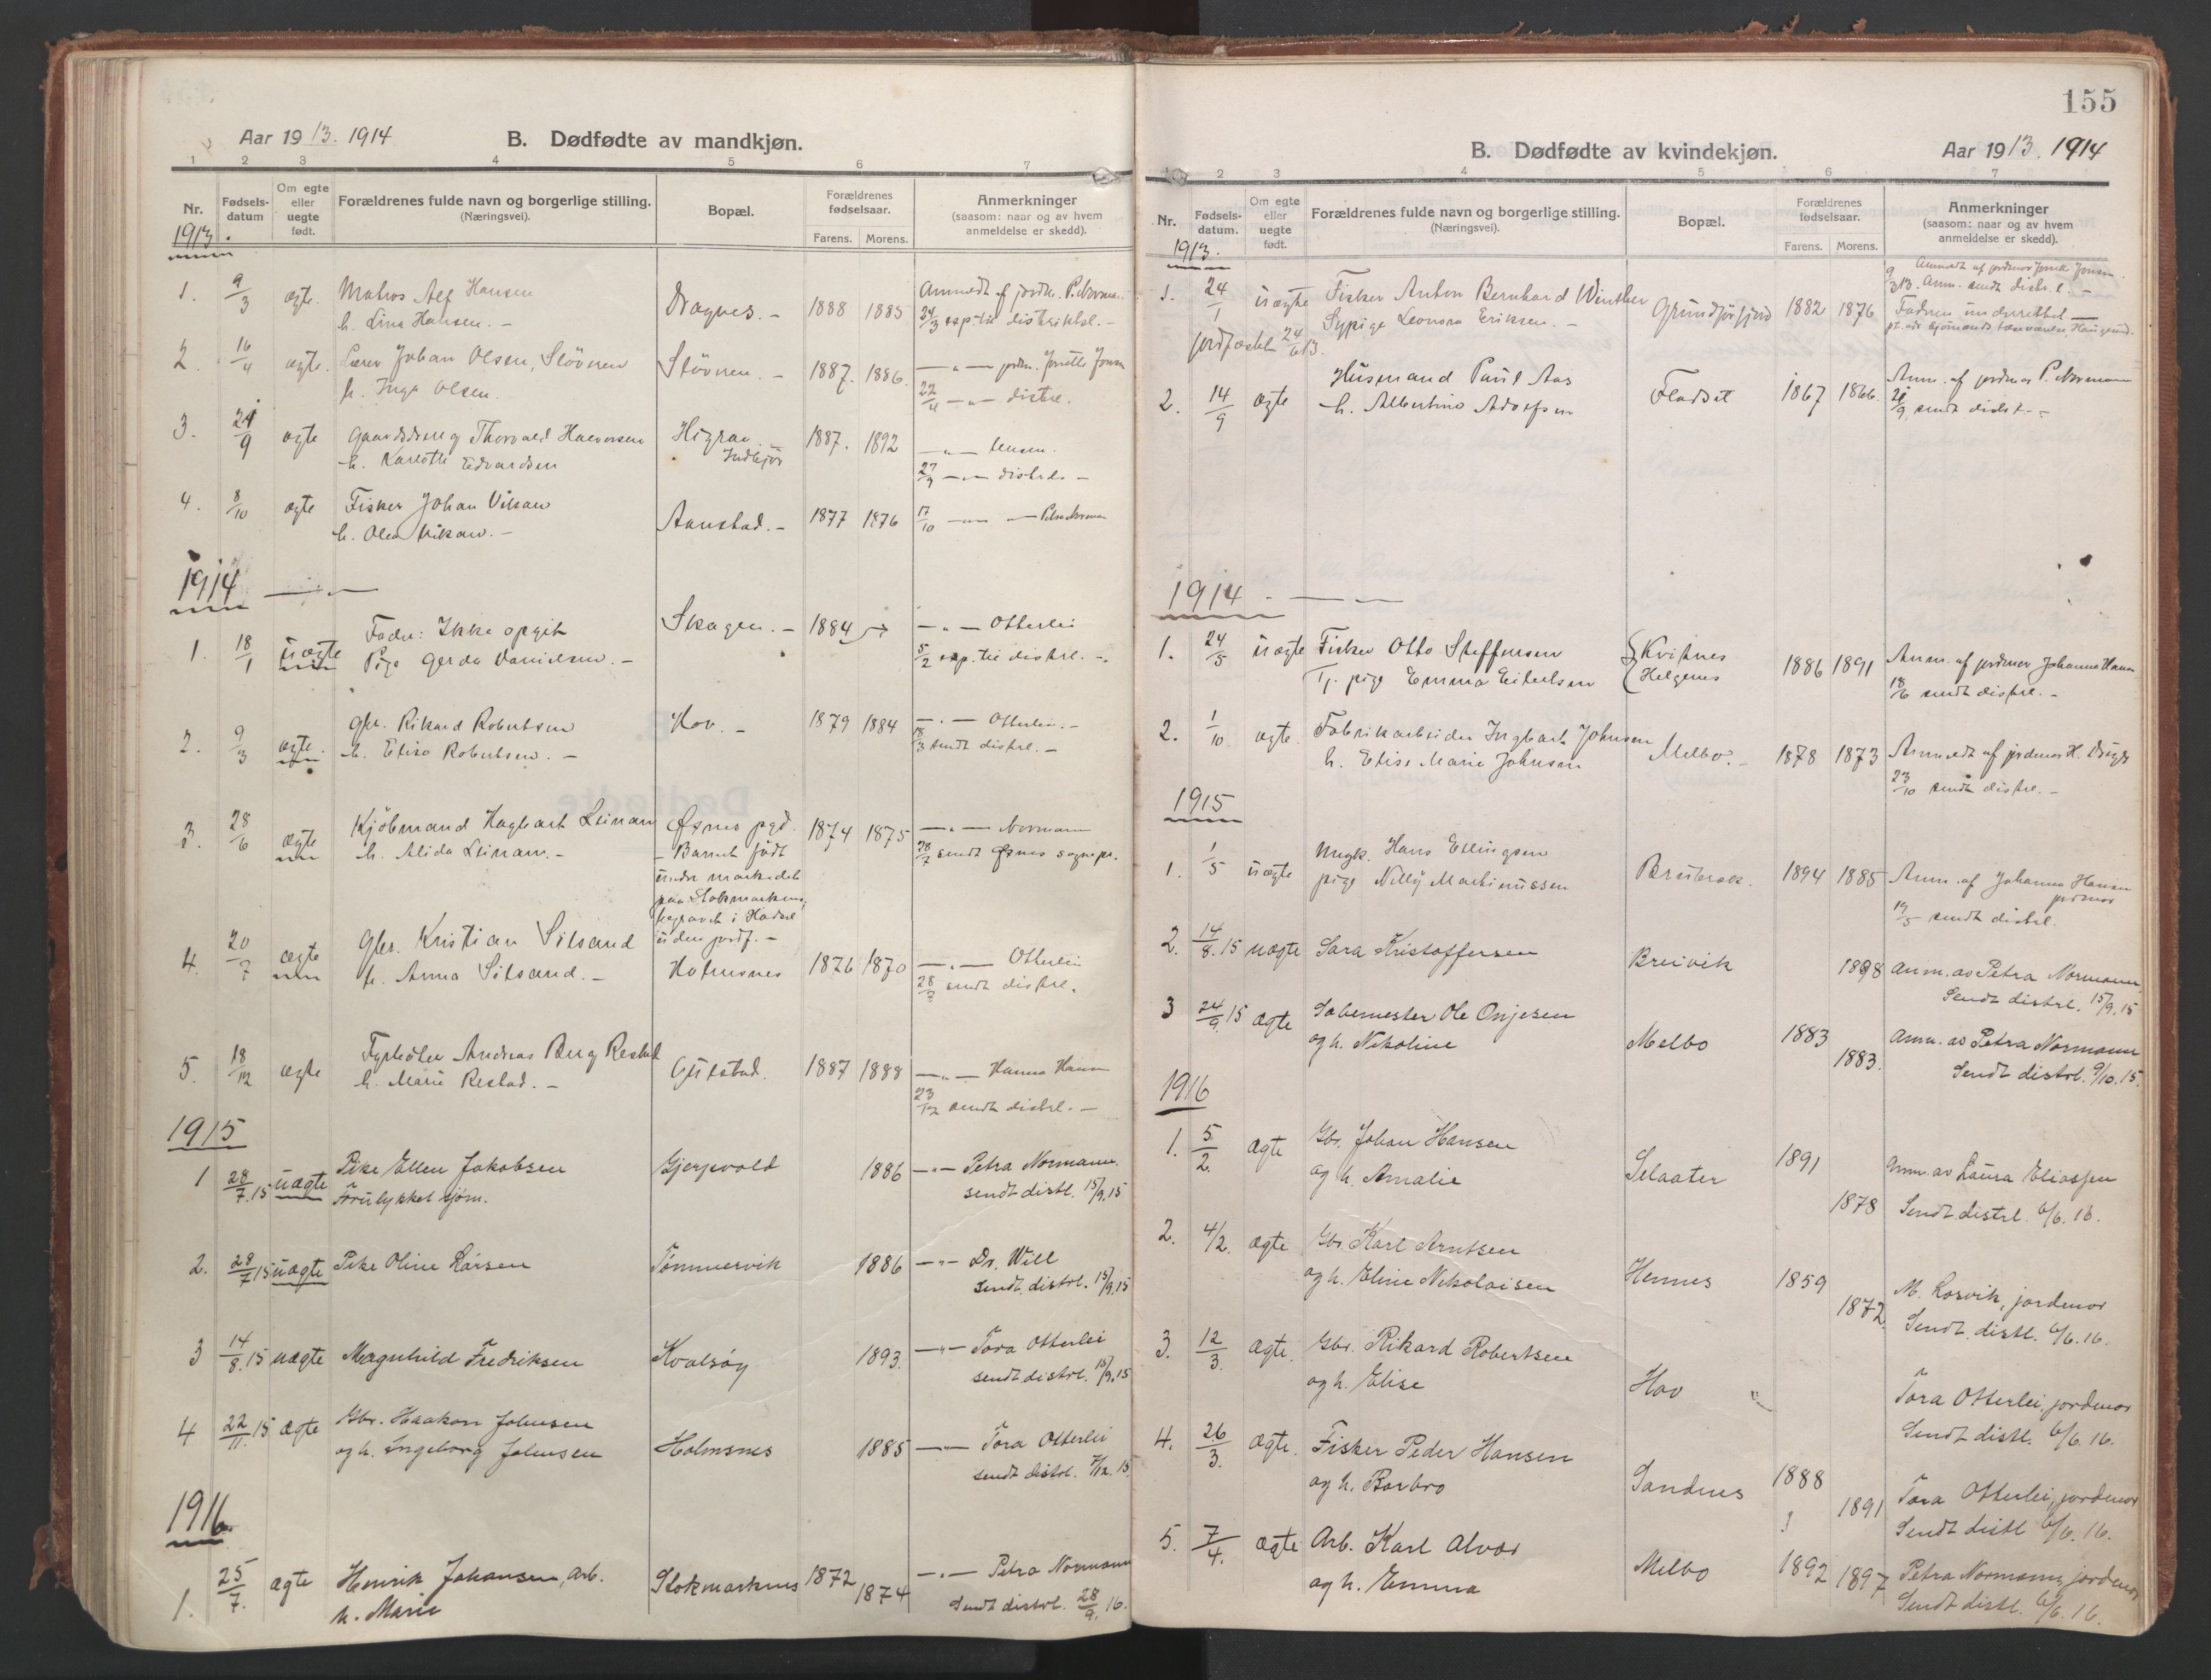 Aar 1913. 1914
B. Dødfødte av mandkjøn.
1 2 3 4 5 6 7
Nr.
Fødsels-
datum
Om egte
eller
uegte
født.
Forældrenes fulde navn og borgerlige stilling.
(Næringsvei).
Bopæl.
Forældrenes
fødselsaar.
Farens. Morens.
Anmerkninger
(saasom: naar og av hvem
anmeldelse er skedd).
1913.
1. 9/3 ægte. Matros Alf Hansen
h. Lina Hansen. –
Dragnes. – 1888 1885
Anmeldt af jordm. P. Normann
24/3 exp. til distriktsl. –
2. 16/4 ægte. Lærer Johan Olsen, Slövnen
h. Inga Olsen.
Slövnen. – 1887. 1886.
— " — jordm. Jonsen
22/4 — " — distrl.
3. 21/9 ægte Gaardsdreng Thorvald Halvorsen
h. Karlotte Edvardsen
Higrav –
1887. 1892
— " — Jensen.
27/9 — " — distrl. –
4. 8/10 ægte Fisker Johan Vikan
h. Olea Vikan. –
Aanstad. – 1877 1876
17/10 — " — Petra Normann
1914 — . —
1. 18/1 uægte Fader: Ikke opgit
Pige Gerda Danielsen. –
Skagen. – 1884
— " — Otterlei
5/2 exp. til distrl. –
2. 9/3 ægte. Gbr. Rikard Robertsen
h. Elise Robertsen. –
Hov. – 1879 1884
— " — Otterlei. –
18/3 sendt distrl. –
3. 28/6 ægte Kjöbmand Hagbart Leinan
h. Alida Leinan. –
Øsnes pgd.
– Barnet födt
under markedet
paa Stokmarknes,
begravet i Hadsel
uden jordf. –
1874 1875
— " — Normann
28/7 sendt Øsnes sognepr.
4. 20/7 ægte Gbr. Kristian Silsand
h. Anna Silsand. –
Holmsnes 1876 1870
— " — Otterlei
28/7 sendt distrl.
5. 18/12 ægte Fyrböter Andreas Berg Restad
h. Marie Restad. –
Gulstad. 1887 1888
— " — Hanna Hansen
23/12 sendt distrl. –
1915
1 28/7.15 uægte Pike Ellen Jakobsen
Forulykket sjøm.
Gjerpvold 1886
— " — Petra Normann.
sendt distl. 15/9.15
2. 28/7 15 uægte Pike Oline Larsen
Tömmervik 1886
— " — Dr. Will
sendt distrl. 15/9.15
3 14/8.15 uægte Magnhild Fredriksen
Kvalsøy 1893.
— " — Tora Otterlei
sendt distrl. 15/9.15
4 22/11.15 ægte Gbr. Haakon Johnsen
og h. Ingeborg Johnsen
Holmsnes 1885
— " — Tora Otterlei
sendt distrl. 7/12.15
1916.
1. 25/7. ægte Henrik Johansen, Arb.
h. Marie
Stokmarknes 1872 1874
— " — Petra Normann
Sendt distrl. 28/9. 16.
155
B. Dødfødte av kvindekjøn.
Aar 1913. 1914
1 2 3 4 5 6 7
Nr.
Fødsels-
datum.
Om egte
eller
uegte
født.
Forældrenes fulde navn og borgerlige stilling.
(Næringsvei).
Bopæl.
Forældrenes
fødselsaar.
Farens. Morens.
Anmerkninger
(saasom: naar og av hvem
anmeldelse er skedd).
1913.
1. 24/1 uægte Fisker Anton Bernhard Winther
Sypige Leonora Eriksen. –
jordfæstet 24/6 13.
Grundförfjord 1882 1876
Anmeldt af jordmor Jonsen
9/3 13. Anm. sendt distr. l. –
Fadren underrettet –
2. 14/9 ægte Husmand Paul Aas
h. Albertine Adolfsen
Fladset 1867 1866.
Anm. af jordmor P. Normann
21/9 sendt distrl. –
1914 . — —
1. 24/5 uægte Fisker Otto Steffensen
Tj. pige Emma Eilertsen
Kvitnes
Helgenes
1886 1891
Anm. af jordmor Johanna Hansen
18/6 sendt distrl. –
2. 1/10 ægte. Fabrikarbeider Ingbart Johnsen
h. Elise Marie Johnsen
Melbo. – 1878 1873
Anmeldt af jordmor H.
23/10 sendt distrl. –
1915
1. 1/5 uægte Ungk. Hans Ellingsen
pige Nilly Martinussen
1894 1885
Anm. af Johanna Hansen
jordmor
19/5 sendt distrl.
2. 14/8.15 uægte Sara Kristoffersen
Breivik 1898
anm. av Petra Normann
Sendt distrl. 15/9.15
3 24/9.15 ægte Sabemester Ole Onjesen
og h. Nikoline
Melbo 1883 1883.
Anm. av Petra Normann
Sendt distrl. 9/10.15.
1916
1. 5/2. ægte Gbr. Johan Hansen
og h. Amalie
Selaater 1891 1878
Anm. av Laura Eliassen
Sendt distrl. 6/6. 16.
2. 4/2. ægte Gbr. Karl Arntsen
og h. Eline Nikolaisen
Hennes 1859 1872.
M. Lorvik, jordmor
Sendt distl. 6/6. 16.
3. 12/3. ægte. Gbr. Rikard Robertsen
og h. Elise
Hov
Tora Otterlei, jordmor
Sendt distl. 6/6. 16.
4. 26/3. ægte. Fisker Peder Hansen
og h. Barbro
Sandnes 1888 1891
Tora Otterlei, jordmor
Sendt distl 6/6. 16.
5. 7/4. ægte Arb. Karl Alvær
og h. Emma
Melbo 1892 1897
Petra Normann, jordmor
Sendt distl. 6/6. 16.